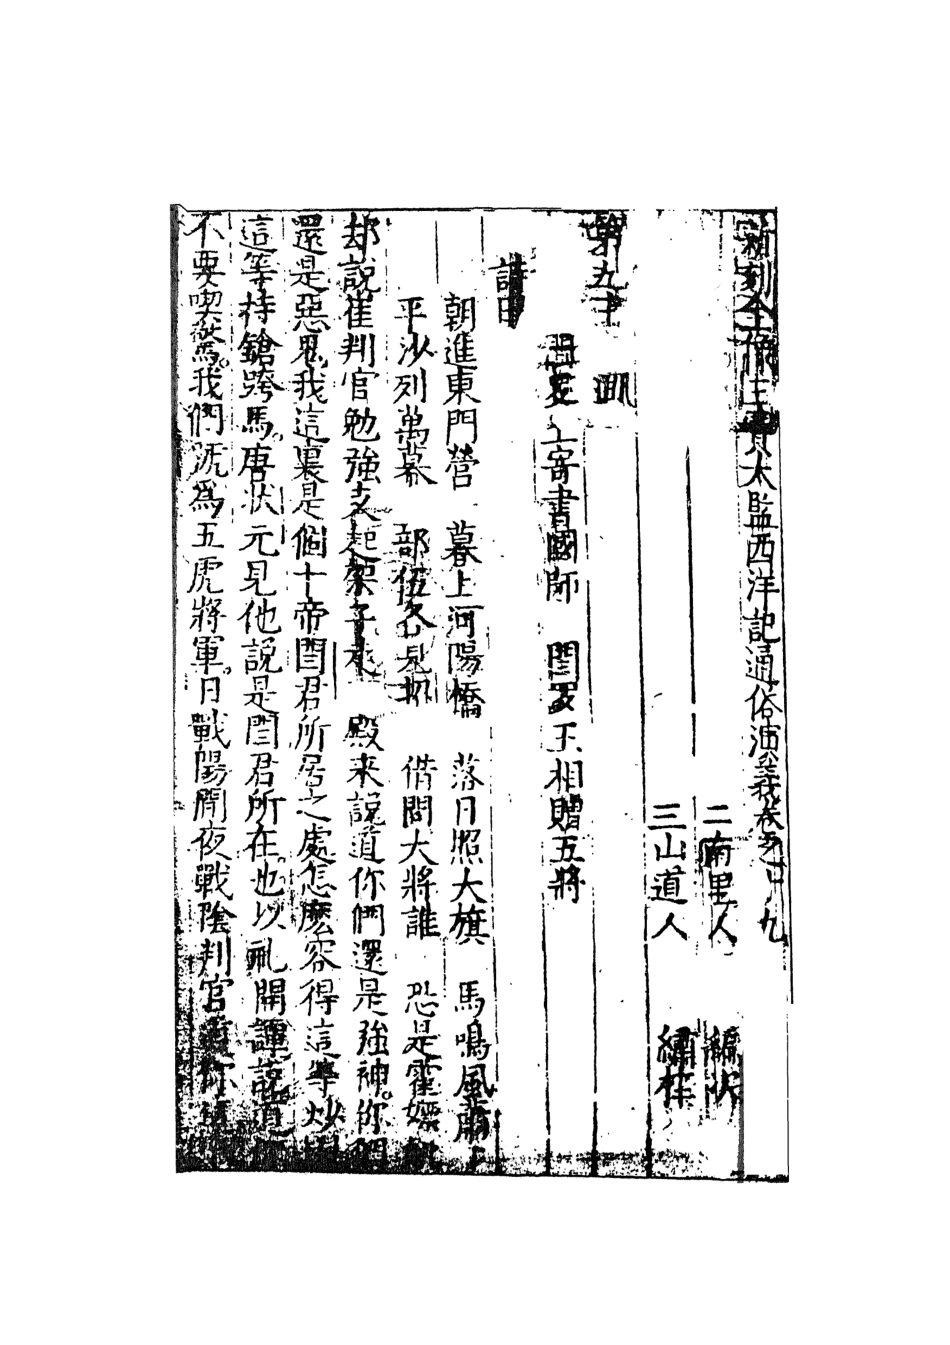 新刻全像三寶太監西洋記通俗演義卷之十九
二南里人 編次
三山道人 繡梓
第九十 回
上寄書國師 閻羅王相贈五將
詩曰
朝進東門營 暮上河陽橋 落日照大旗 馬鳴風蕭
平沙列萬幕 部伍各見招 借問大將誰 恐是霍嫖
却說崔判官勉強支起架子來 殿来説道你們還是強神你們
還是惡鬼我這裏是個十帝閻君所居之處怎麽容得這等炒
這等持鎗跨馬唐状元見他說是閻君所在也以礼開譚說道
不要喫驚我們號為五虎將軍日戰陽間夜戰陰判官道你